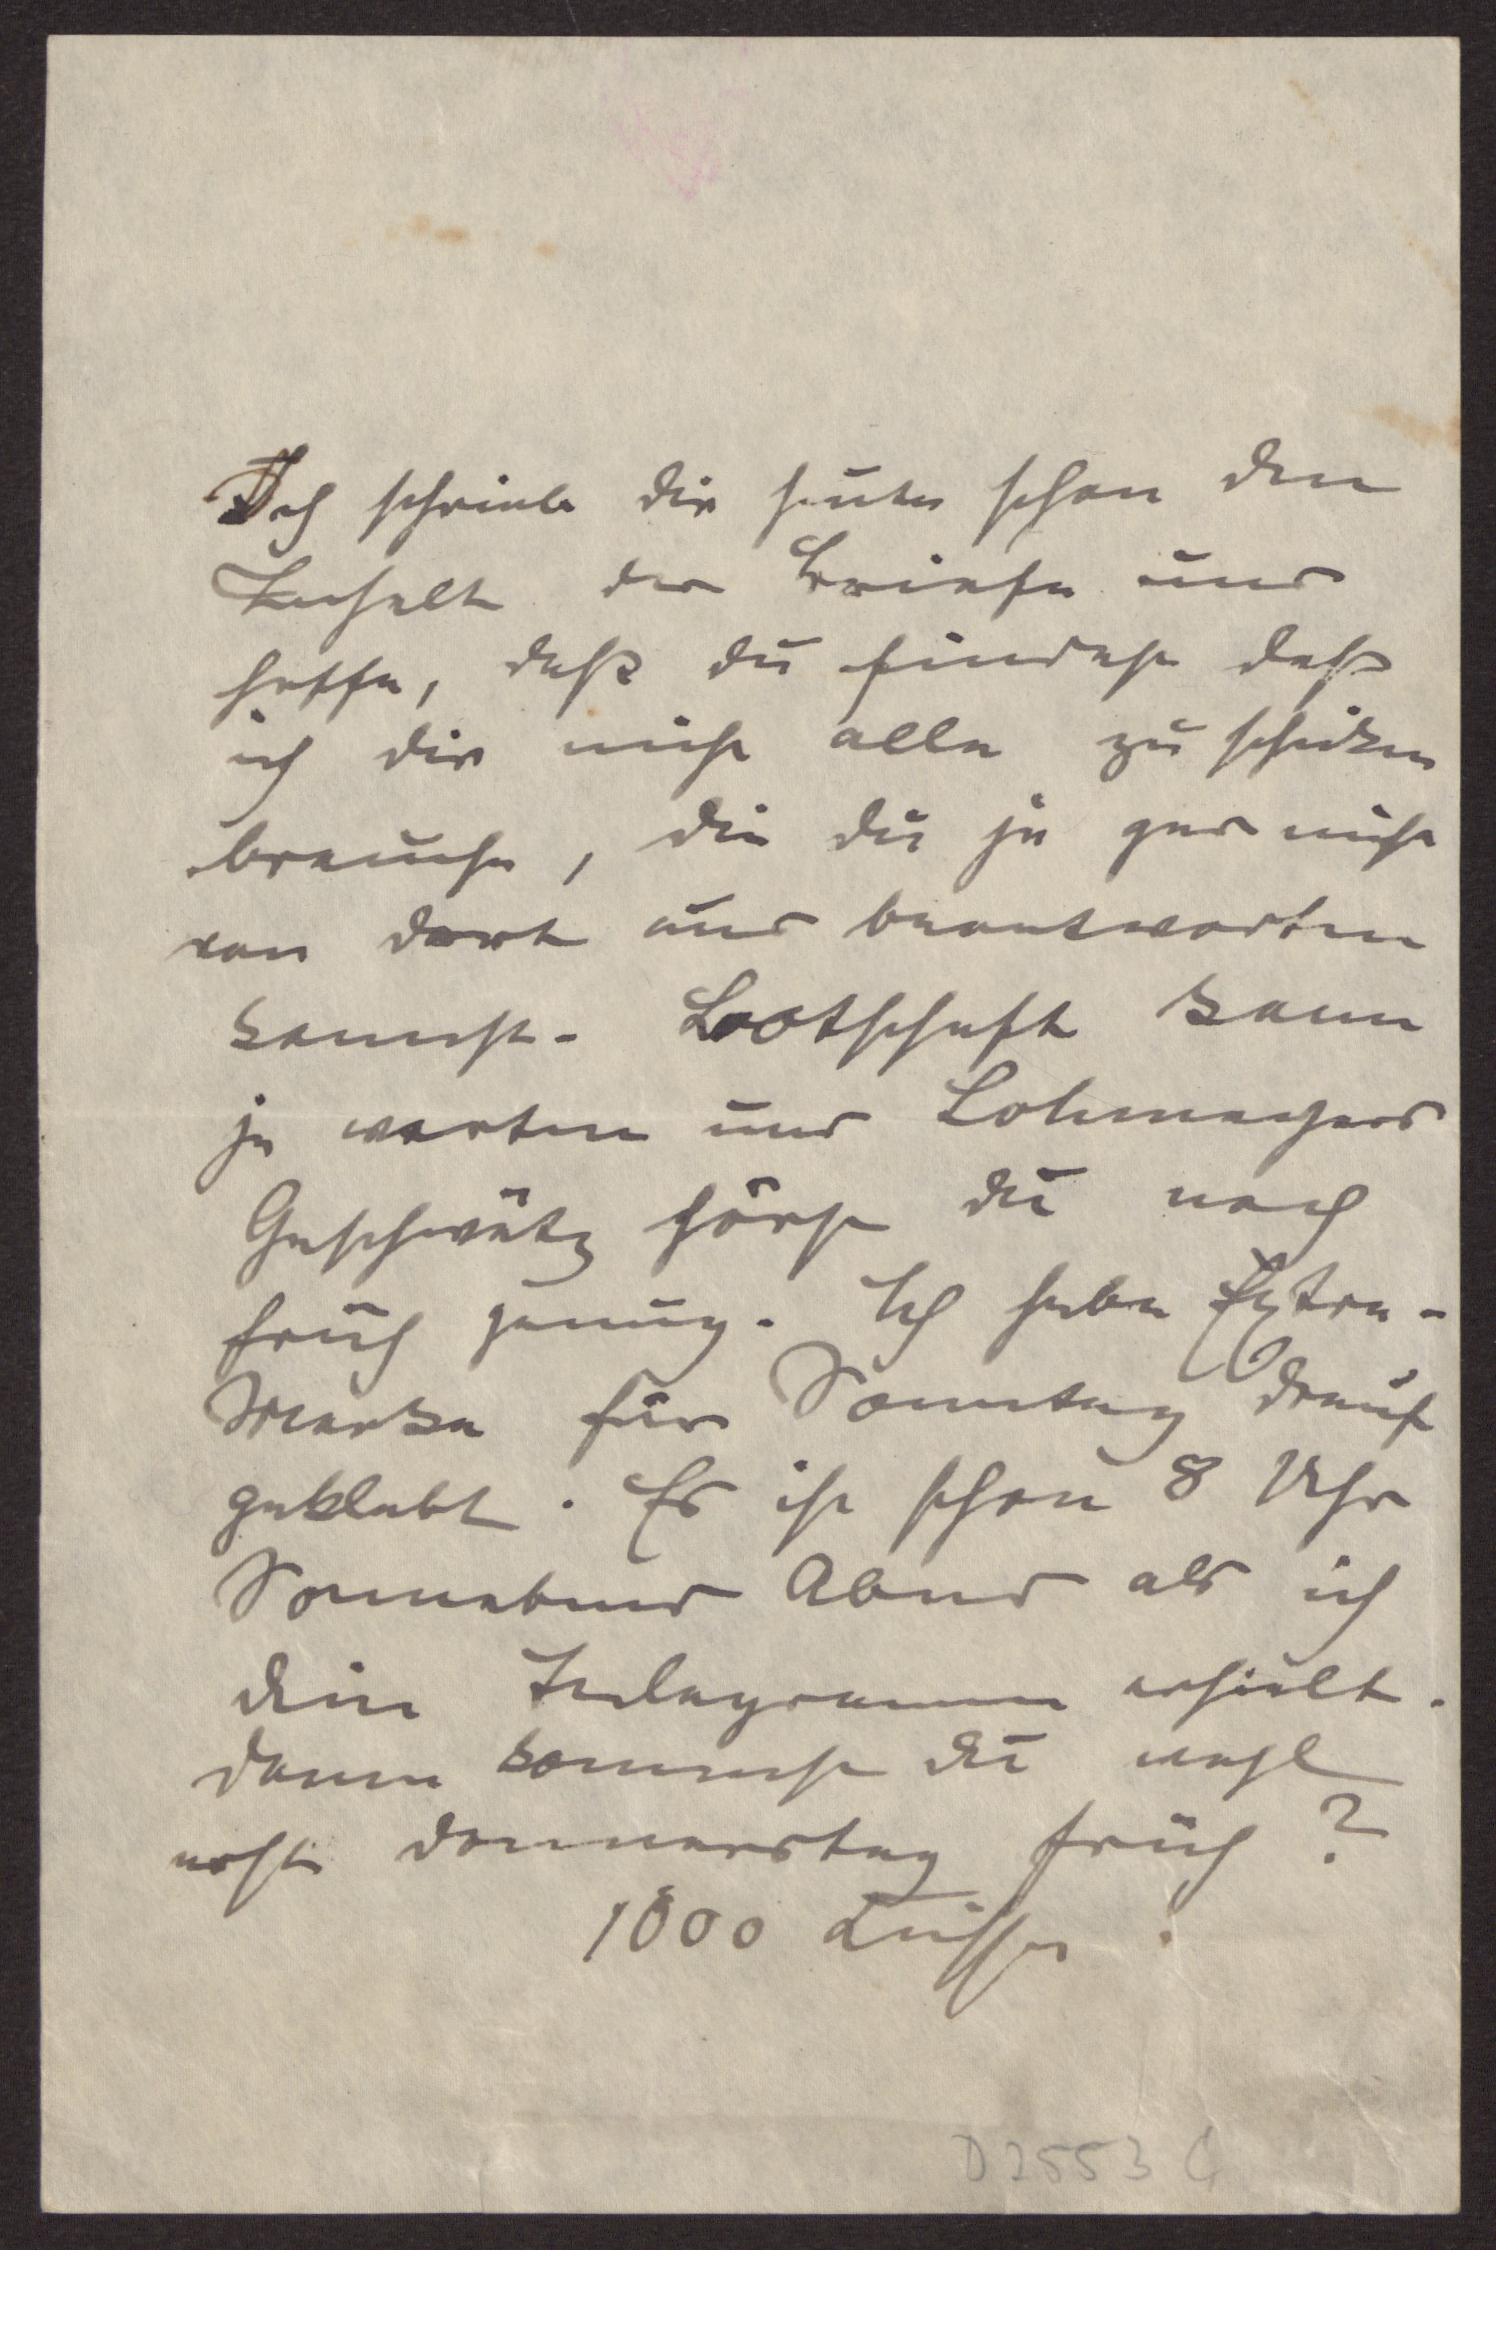 Ich schrieb dir heute schon den
Inhalt der Briefe und
hoffe, daß du findest daß
ich dir nicht alle zu schicken
brauche, die du ja gar nicht
von dort aus beantworten
kannst. Botschaft kann
ja warten und Lohmeyers
Geschwätz hörst du noch
früh genug. Ich habe Extra-
Marke für Sonntag drauf
geklebt. Es ist schon 8 Uhr
Sonnabend Abend als ich
dein Telegramm erhielt.
dann kommst du wohl
erst donnerstag früh?
1000 Küsse.
D2553